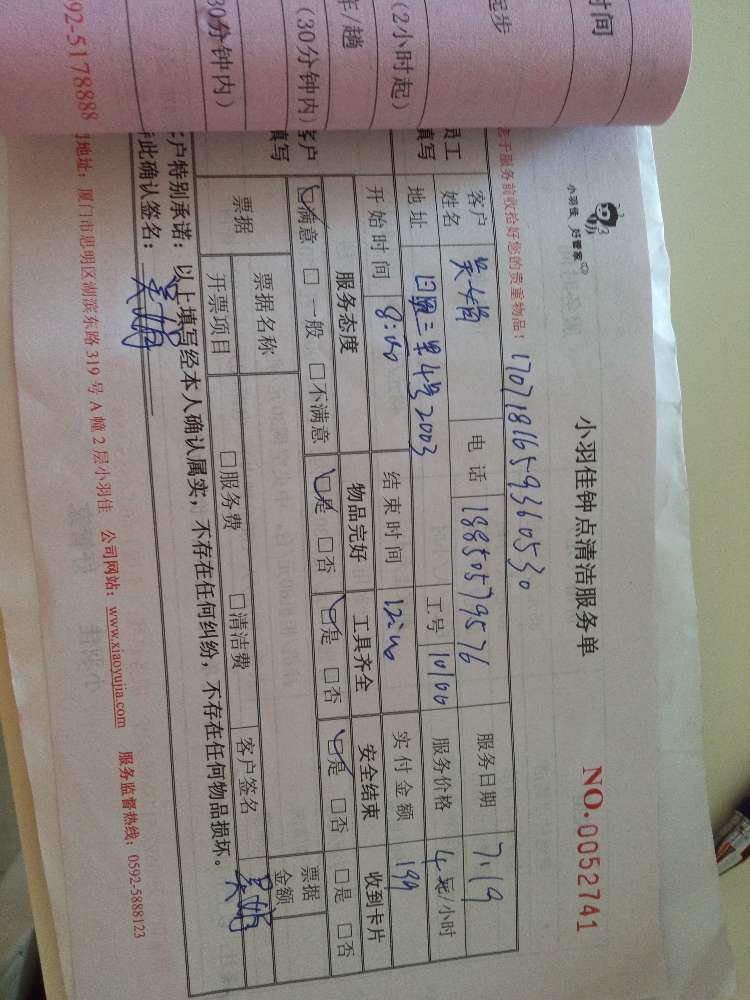 时间
起步
(2小时起)
年/趟
(30分钟内)
30分钟内)
592-5178888
小羽佳 好管家
小羽佳钟点清洁服务单
NO. 0052741
于服务前收拾好您的贵重物品！
1707181659360530
员工填写
客户姓名
吴
电话
18850579576
服务日期
7.19
地址
三里4号2003
工号
10100
服务价格
4 /小时
开始时间
8:00
结束时间
12:00
实付金额
199
客户填写
服务态度
物品完好
工具齐全
安全结束
收到卡片
☑满意 □一般 □不满意
☑是 □否
☑是 □否
☑是 □否
□是 □否
票据
票据名称
票据金额
开票项目
□服务费
□清洁费
客户签名
吴
客户特别承诺：以上填写经本人确认属实，不存在任何纠纷，不存在任何物品损坏。
此确认签名：
吴
地址：厦门市思明区湖滨东路319号A幢2层小羽佳 公司网站：www.xiaoyujia.com 服务监督热线：0592-5888123